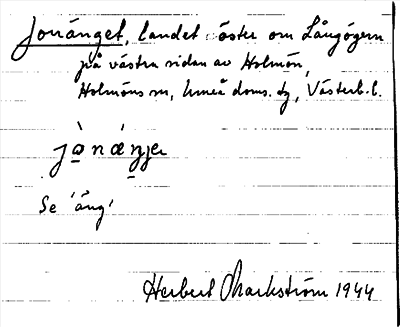 Jonänget, landet öster om Långögern
på västra sidan av Holmön,
Holmöns sn, Umeå doms. tg, Västerb. l.
Se 'äng'
Herbert Markström 1944